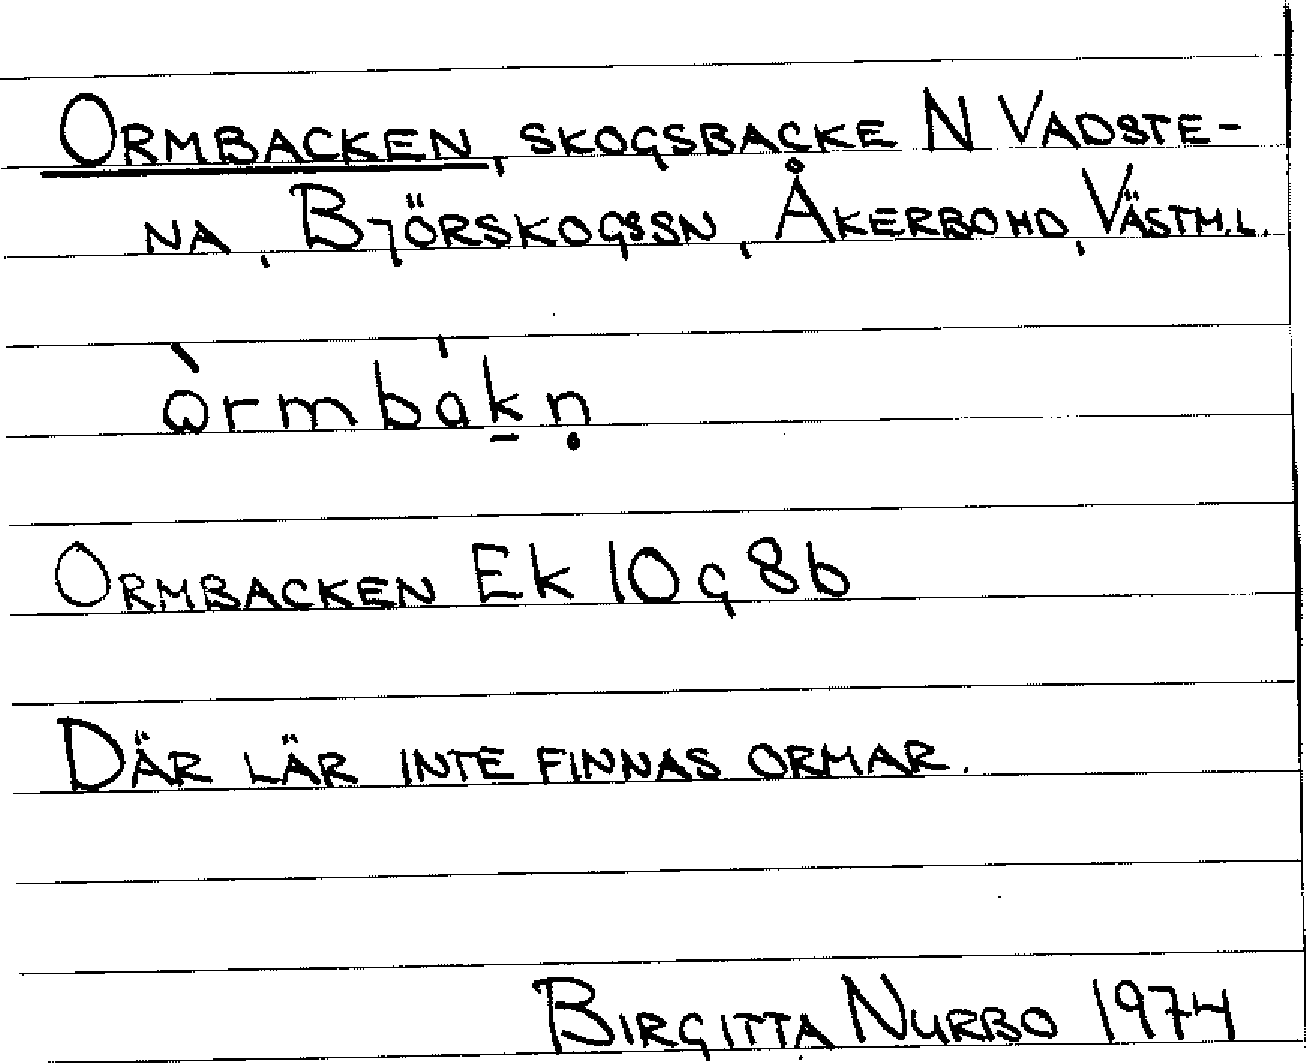 ORMBACKEN, SKOGSBACKE N VADSTE-
NA, BJÖRSKOGSSN, ÅKERBOHD, VÄSTM.L.
ὼrmbák̠ṇ
ORMBACKEN Ek 10g8b
DÄR LÄR INTE FINNAS ORMAR.
BIRGITTA NURBO 1974